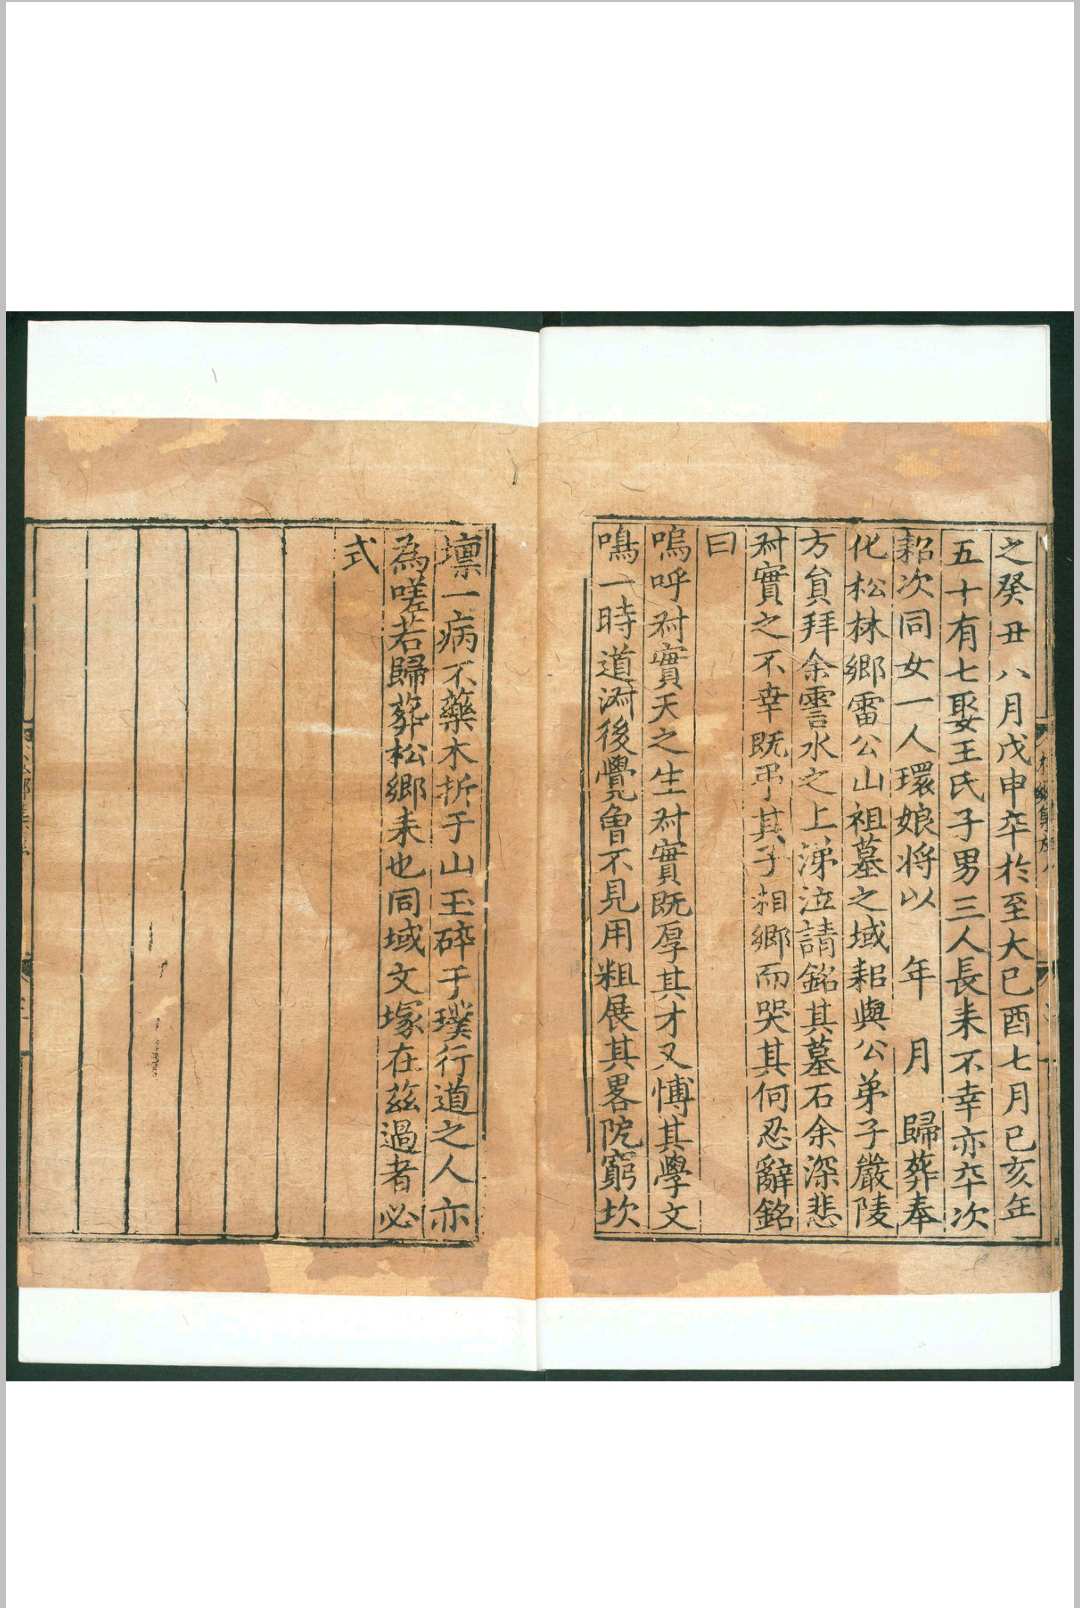 之癸丑八月戊申卒於至大己酉七月己亥年
五十有七娶王氏子男三人長耒不幸亦卒次
耜次同女一人環娘将以　年　月　歸葬奉
化松林鄉雷公山祖墓之域耜與公弟子嚴陵
方貟拜余霅水之上涕泣請銘其墓石余深悲
尗實之不幸既弔其子相鄉而哭其何忍辭銘
曰
嗚呼尗實天之生尗實既厚其才又愽其學文
鳴一時道淑後覺曾不見用粗展其畧阨窮坎
壈一病不藥木折于山玉碎于璞行道之人亦
為嗟若歸葬松鄉耒也同域文塚在茲過者必
式